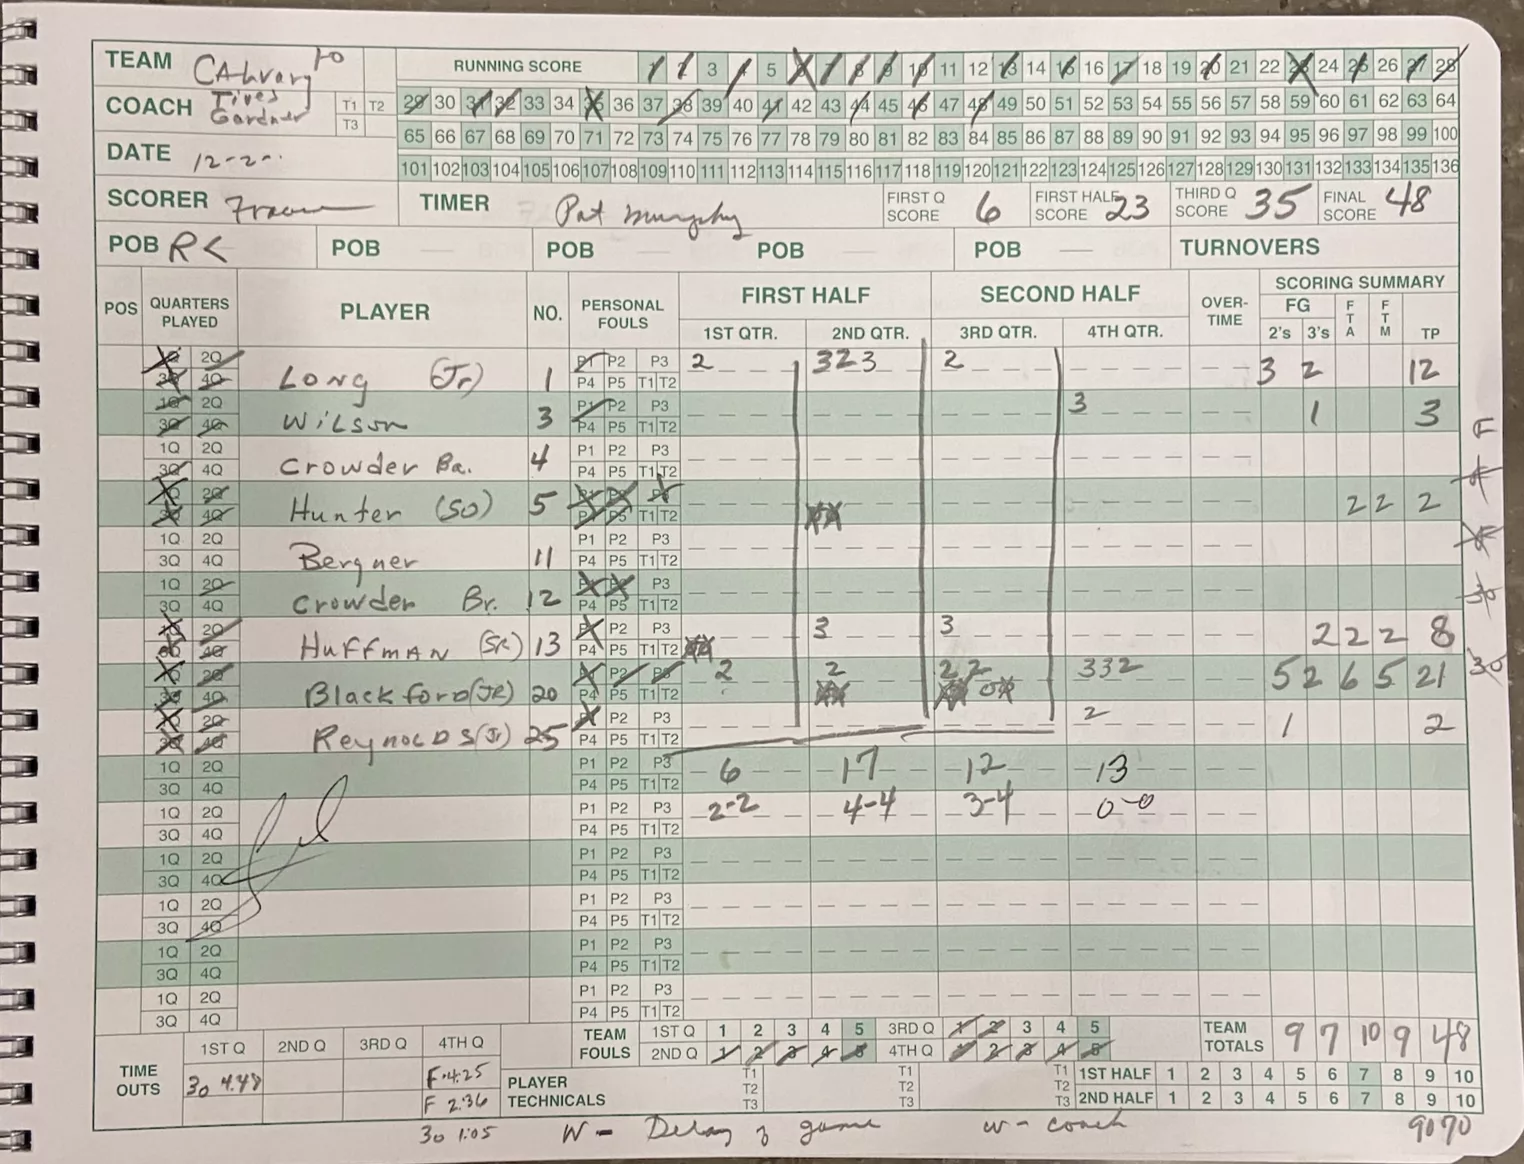 TEAM CALvary to RUNNING SCORE 1 2 3 4 5 6 7 8 9 10 11 12 13 14 15 16 17 18 19 20 21 22 23 24 25 26 27 28
COACH Tives Gardner T1 T2 T3 29 30 31 32 33 34 35 36 37 38 39 40 41 42 43 44 45 46 47 48 49 50 51 52 53 54 55 56 57 58 59 60 61 62 63 64
65 66 67 68 69 70 71 72 73 74 75 76 77 78 79 80 81 82 83 84 85 86 87 88 89 90 91 92 93 94 95 96 97 98 99 100
DATE 12-2- 101 102 103 104 105 106 107 108 109 110 111 112 113 114 115 116 117 118 119 120 121 122 123 124 125 126 127 128 129 130 131 132 133 134 135 136
SCORER TIMER Pat Murphy FIRST Q SCORE 6 FIRST HALF SCORE 23 THIRD Q SCORE 35 FINAL SCORE 48
POB R< POB POB POB POB TURNOVERS
POS QUARTERS PLAYED PLAYER NO. PERSONAL FOULS FIRST HALF SECOND HALF OVER-TIME SCORING SUMMARY
1ST QTR. 2ND QTR. 3RD QTR. 4TH QTR. FG 2's 3's FTA FTM TP
1Q 2Q P1 P2 P3 2 323 2
3Q 4Q Long (Jr) 1 P4 P5 T1 T2 3 2 12
1Q 2Q P1 P2 P3 3
3Q 4Q Wilson 3 P4 P5 T1 T2 1 3
1Q 2Q P1 P2 P3 F
3Q 4Q Crowder Ba. 4 P4 P5 T1 T2
1Q 2Q P1 P2 P3 F
3Q 4Q Hunter (SO) 5 P4 P5 T1 T2 2 2 2
1Q 2Q P1 P2 P3 F
3Q 4Q Bergner 11 P4 P5 T1 T2
1Q 2Q P1 P2 P3 30
3Q 4Q Crowder Br. 12 P4 P5 T1 T2
1Q 2Q P1 P2 P3 3 3
3Q 4Q HuffMAN (SR) 13 P4 P5 T1 T2 2 2 2 8
1Q 2Q P1 P2 P3 2 2 2 2 332 30
3Q 4Q Blackford (JR) 20 P4 P5 T1 T2 5 2 6 5 21
1Q 2Q P1 P2 P3 2
3Q 4Q ReynoLDS (Jr) 25 P4 P5 T1 T2 1 2
1Q 2Q P1 P2 P3 6 17 12 13
3Q 4Q P4 P5 T1 T2
1Q 2Q P1 P2 P3 2-2 4-4 3-4 0-0
3Q 4Q P4 P5 T1 T2
1Q 2Q P1 P2 P3
3Q 4Q P4 P5 T1 T2
1Q 2Q P1 P2 P3
3Q 4Q P4 P5 T1 T2
1Q 2Q P1 P2 P3
3Q 4Q P4 P5 T1 T2
1Q 2Q P1 P2 P3
3Q 4Q P4 P5 T1 T2
TEAM FOULS 1ST Q 1 2 3 4 5 3RD Q 1 2 3 4 5 TEAM TOTALS 9 7 10 9 48
2ND Q 1 2 3 4 5 4TH Q 1 2 3 4 5
TIME OUTS 1ST Q 2ND Q 3RD Q 4TH Q
30 4.48 F 4:25 PLAYER TECHNICALS T1 T2 T3 T1 T2 T3 T1 T2 T3 1ST HALF 1 2 3 4 5 6 7 8 9 10
F 2:36 2ND HALF 1 2 3 4 5 6 7 8 9 10
30 1:05 W - Delay of game w - coach 90%